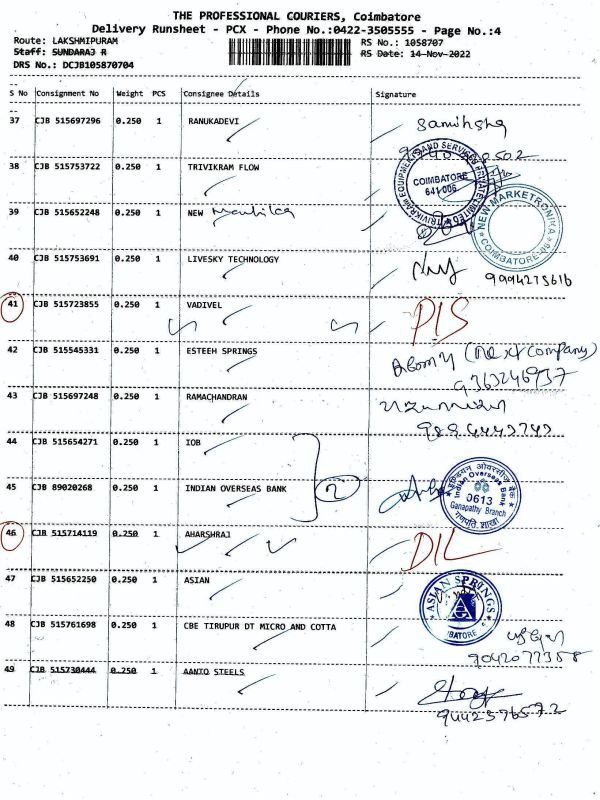 THE PROFESSIONAL COURIERS, Coimbatore
Delivery Runsheet - PCX - Phone No.:0422-3505555 - Page No.:4
Route: LAKSHMIPURAM RS No.: 1058707
Staff: SUNDARAJ R RS Date: 14-Nov-2022
DRS No.: DCJB105870704
S No Consignment No Weight PCS Consignee Details Signature
37 CJB 515697296 0.250 1 RANUKADEVI
38 CJB 515753722 0.250 1 TRIVIKRAM FLOW
TRIVIKRAM EQUIPMENTS AND SERVICES PRIVATE LIMITED
COIMBATORE
641 006
39 CJB 515652248 0.250 1 NEW
NEW MARKETRONIKA
COIMBATORE
40 CJB 515753691 0.250 1 LIVESKY TECHNOLOGY
9994275616
41 CJB 515723855 0.250 1 VADIVEL
PIS
42 CJB 515545331 0.250 1 ESTEEH SPRINGS
(Next Company)
9363246937
43 CJB 515697248 0.250 1 RAMACHANDRAN
44 CJB 515654271 0.250 1 IOB
2
45 CJB 89020268 0.250 1 INDIAN OVERSEAS BANK
इण्डियन ओवरसीज़ बैंक
Indian Overseas Bank
0613
Ganapathy Branch
गणपति शाखा
46 CJB 515714119 0.250 1 AHARSHRAJ
DIL
47 CJB 515652250 0.250 1 ASIAN
ASIAN SPRINGS
A
48 CJB 515761698 0.250 1 CBE TIRUPUR DT MICRO AND COTTA
9042077358
49 CJB 515730444 0.250 1 AANTO STEELS
9442576572